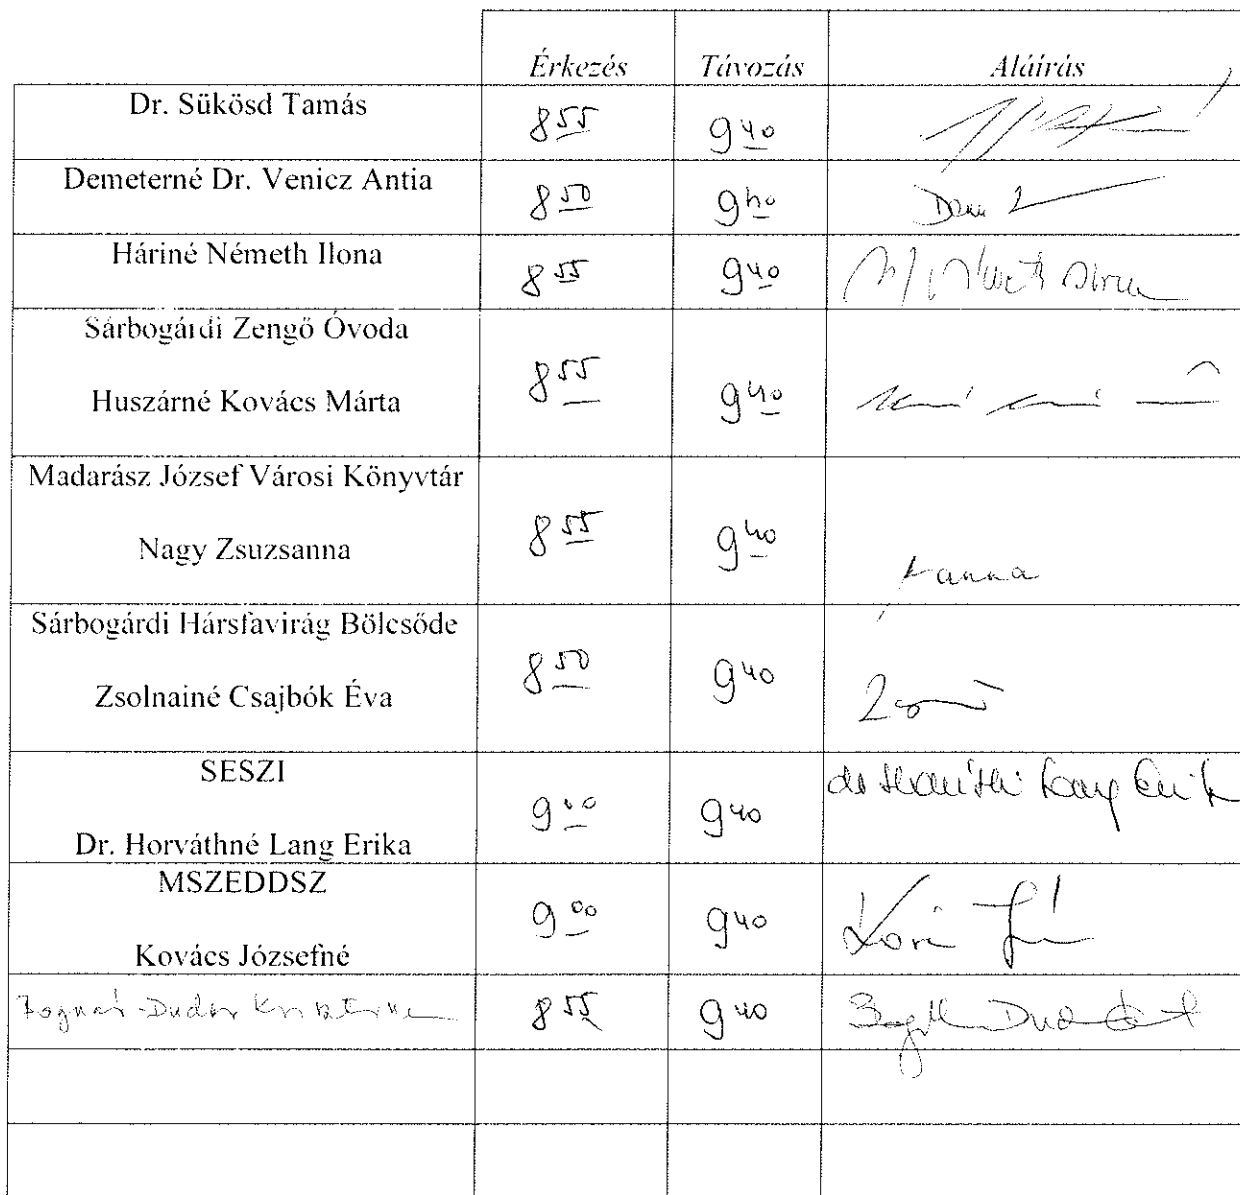 Érkezés Távozás Aláírás
Dr. Sükösd Tamás 8 55 9 40
Demeterné Dr. Venicz Antia 8 50 9 40
Háriné Németh Ilona 8 55 9 40
Sárbogárdi Zengő Óvoda
Huszárné Kovács Márta 8 55 9 40
Madarász József Városi Könyvtár
Nagy Zsuzsanna 8 55 9 40
Sárbogárdi Hársfavirág Bölcsőde
Zsolnainé Csajbók Éva 8 50 9 40
SESZI
Dr. Horváthné Lang Erika 9 00 9 40
MSZEDDSZ
Kovács Józsefné 9 00 9 40
8 55 9 40